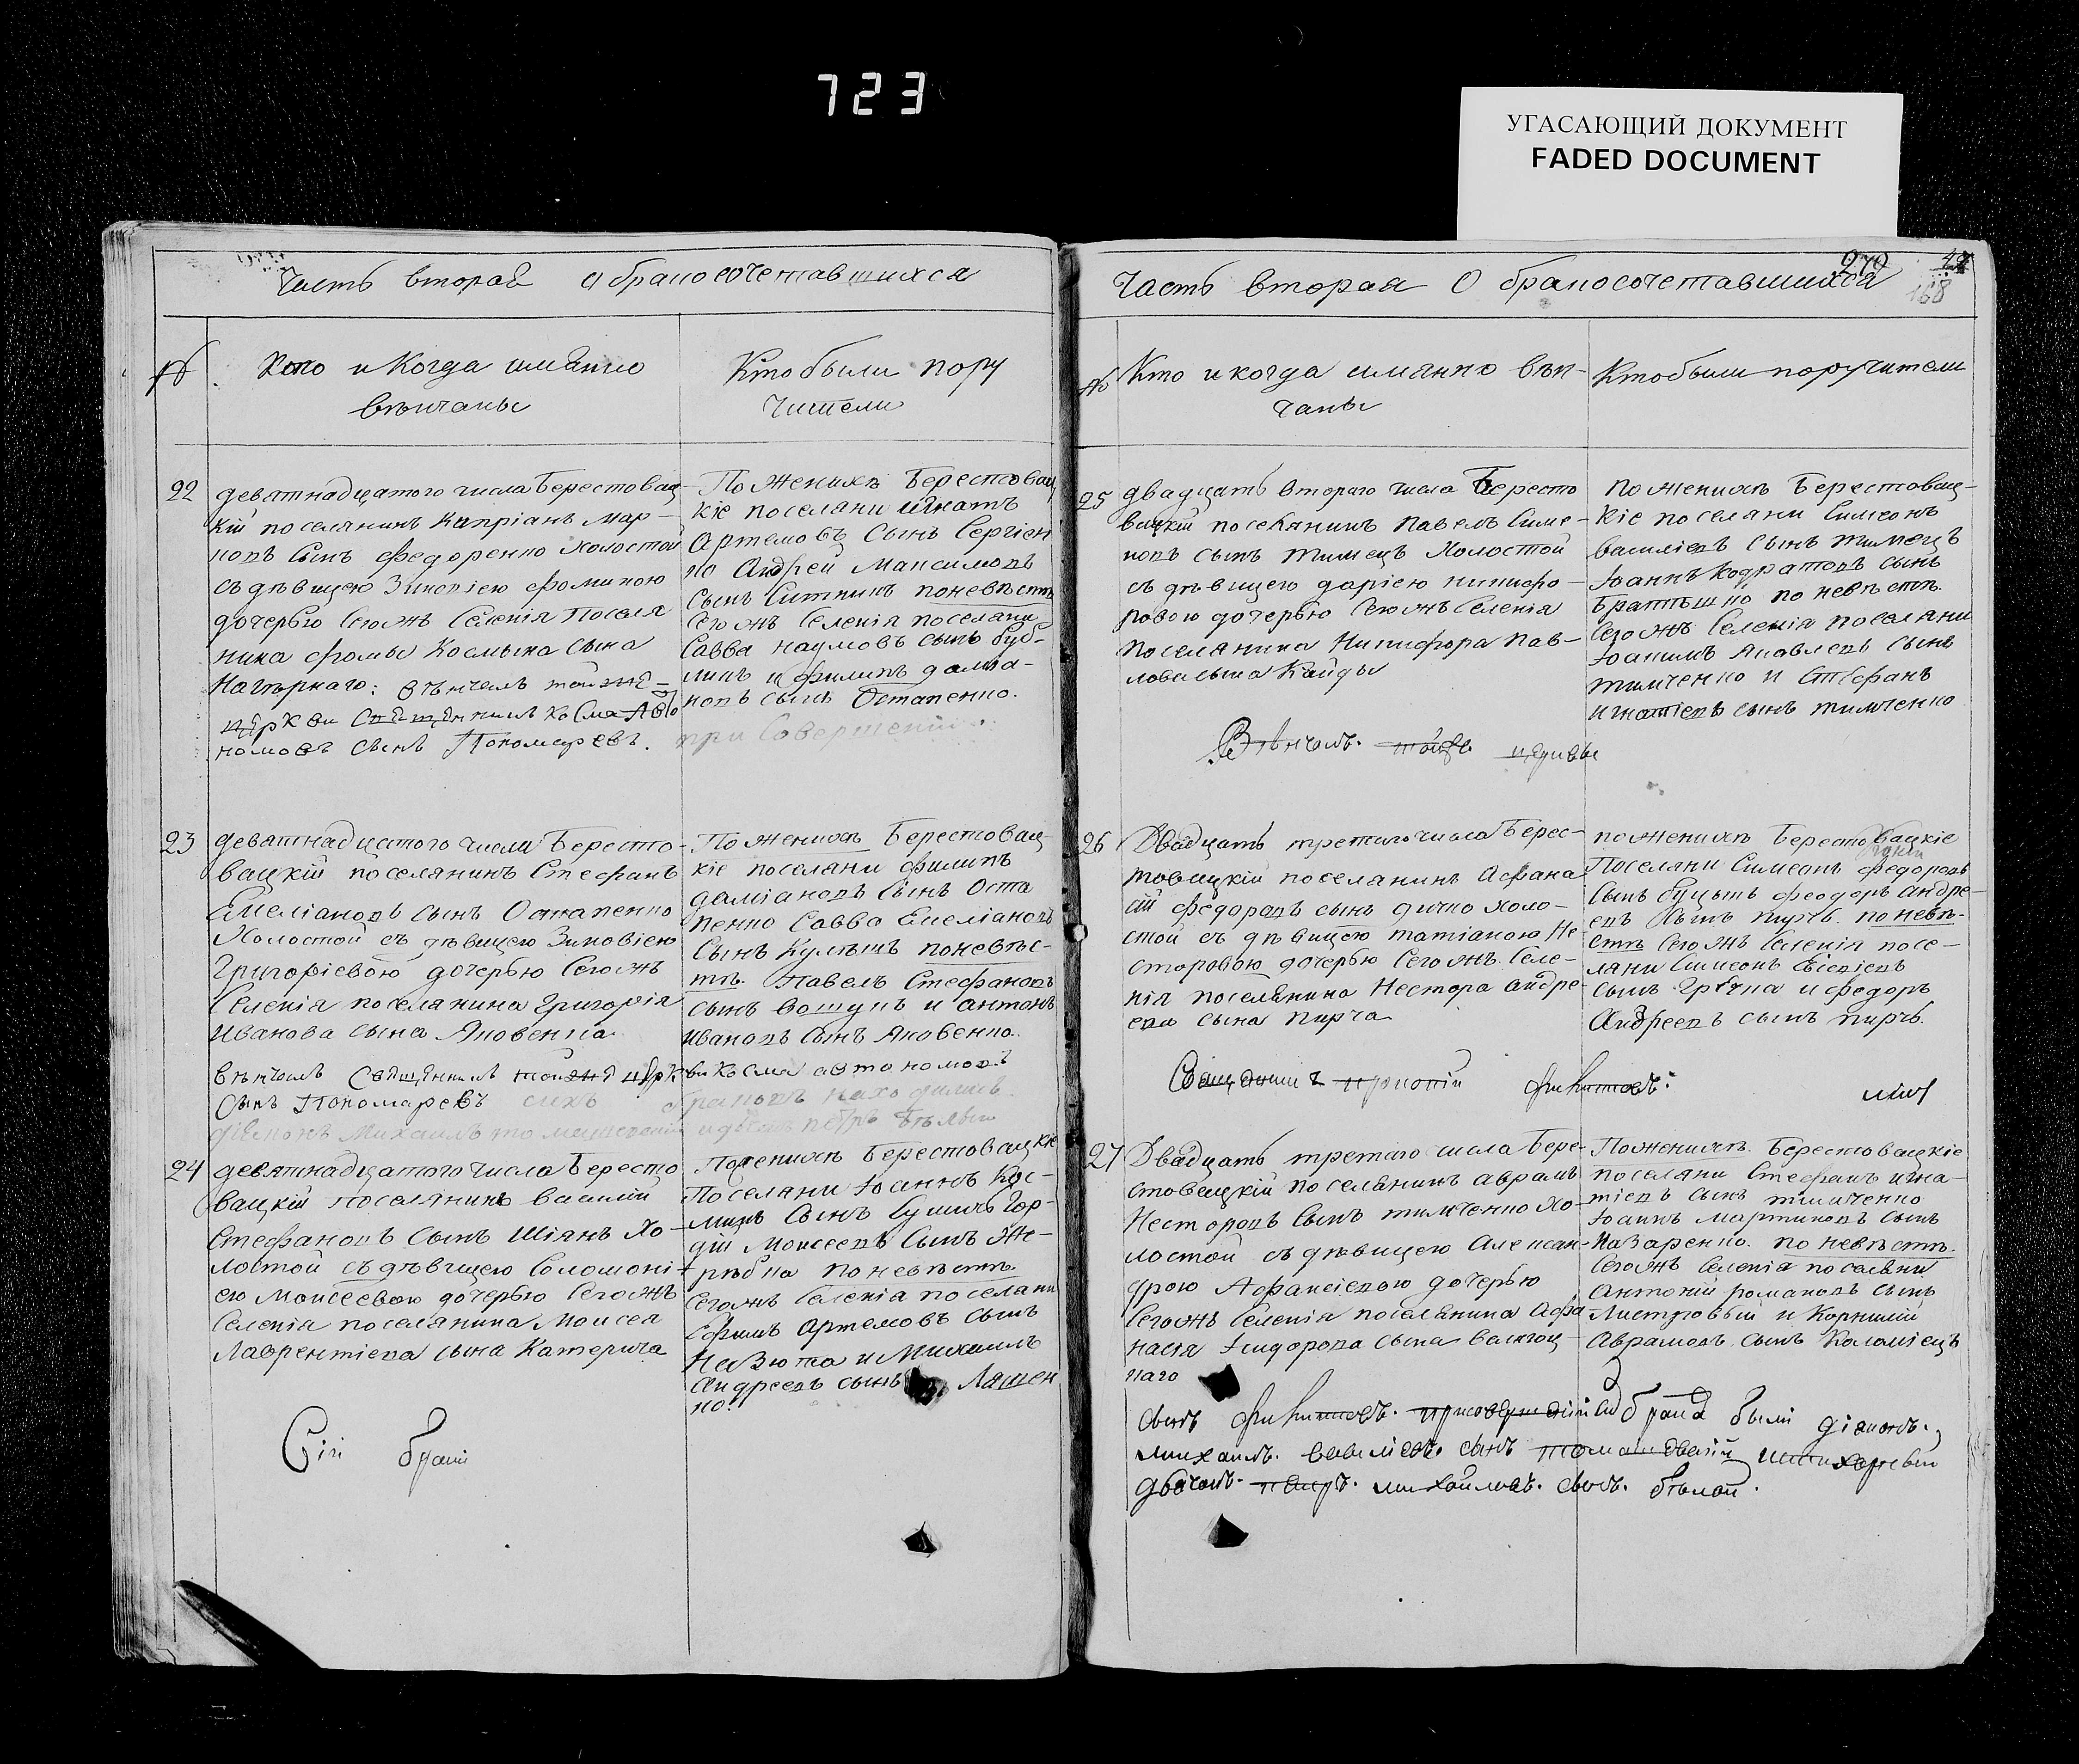 723
УГАСАЮЩИЙ ДОКУМЕНТ
FADED DOCUMENT
Часть вторая о бракосочетавшихся
№
Кто и Когда имянно
вѣнчаны
Кто были пору
чители
22
девятнадцатого числа Берестовац-
кій поселянинъ Кипріанъ Мар-
ковъ Сынъ Федоренко холостой
съ дѣвицею Зиновіею Фоминою
дочерью Сегожъ Селенія Поселя
нина Фомы Космына Сына
Нагорнаго: вѣнчалъ тойже
цѣркви Свящѣнникъ Косма Авто
номовъ сынъ Пономаревъ.
По женихѣ Берестовац
кіе поселяни Игнатъ
Артемовъ Сынъ Сергіен
ко Андрей Максимовъ
Сынъ Ситникъ поневѣстѣ
Сегожъ Селенія поселяни
Савва Наумовъ сынъ
и филипъ даміа-
новъ сынъ Остапенко.
при Совершеніи
23
девятнадцатого числа Бересто-
вацкій поселянинъ Стефанъ
Емеліановъ сынъ Остапенко
Холостой съ дѣвицею Зиновіею
Григоріевою дочерью Сегожъ
Селенія поселянина Григорія
Иванова сына Яковенка
вѣнчалъ Свящѣнникъ тойже цѣркви Косма автономовъ
Сынъ Пономаревъ сихъ браковъ находились
діяконъ Михаилъ томашевскій и дьячокъ петръ бѣлый
По женихѣ Берестовац-
кіе поселяни филипъ
даміановъ Сынъ Оста
пенко Савва Емеліановъ
Сынъ Кулѣшъ поневѣс-
тѣ. Павелъ Стефановъ
сынъ Вошунъ и Антонъ
Ивановъ Сынъ Яковенко.
24
девятнадцатого числа Бересто
вацкій поселянинъ василій
Стефановъ Сынъ Шіянъ Хо-
лостой съ дѣвицею Соломоні-
ею Моисеевою дочерью Сегожъ
Селенія поселянина Моисея
Лаврентіева сына Катерича
По женихѣ Берестовацкіе
Поселяни Іоаннъ Кос-
минъ Сынъ Гор-
дій Моисеевъ Сынъ Же-
рѣбка поневѣстѣ
Сегожъ Селенія поселяни
Ефимъ Артемовъ сынъ
Кавюта и Михаилъ
Андреевъ сынъ Ляшен
ко.
Сіи браки
Часть вторая О бракосочетавшихся
270
168
№
Кто и когда имянно вѣн-
чаны
Кто были поручители
25
двадцать второго числа Бересто
вацкій поселянинъ Павелъ Симе-
новъ сынъ Тимецъ Холостой
съ дѣвицею даріею никифо-
ровою дочерью Сегожъ Селенія
поселянина Никифора Пав-
лова сына Кайды
Вѣнчалъ. тойже цѣркви
По женихѣ Берестовац-
кіе поселяни Симеонъ
василіевъ сынъ Тимецъ
Іоаннъ Кодратовъ сынъ
по невѣстѣ.
Сегожъ Селенія поселяни
Іоакимъ Яковлевъ сынъ
Тимченко и Стефанъ
Игнатіевъ сынъ Тимченко
26
Двадцать третаго числа Берес-
товацкій поселянинъ Афана
сій федоровъ сынъ дичко холо-
стой съ дѣвицею татіаною Не-
сторовою дочерью Сегожъ Селе-
нія поселянина Нестора андре-
ева сына Пирча
Священникъ прокопій филиповъ:
по женихѣ Берестовацкіе
Поселяни Симеонъ Федоровъ
Сынъ феодоръ андре-
евъ Сынъ пирчъ. поневѣ-
стѣ Сегожъ Селенія посе-
ляни Симеонъ
сынъ и федоръ
Андреевъ сынъ пирчъ.
27
Двадцать третаго числа Бере-
стовацкій поселянинъ аврамъ
Несторовъ Сынъ тимченко Хо-
лостой съ дѣвицею Алексан-
дрою Афанасіевою дочерью
Сегожъ Селенія поселянина Афа
насія Ісидорова сына
наго
По женихѣ. Берестовацкіе
поселяни Стефанъ игна-
тіевъ сынъ тимченко
Іоаннъ Мартиновъ сынъ
Назаренко. по невѣстѣ.
Сегожъ Селенія поселяни
Антоній романовъ сынъ
Листровый и Корнилій
Аврамовъ сынъ Коломіецъ
сынъ филиповъ. присовершеніи сихъ браковъ были діяконъ.
михаилъ. василіевъ. сынъ томашевскій
дьячокъ. петръ. михайловъ. сынъ. бѣлой.